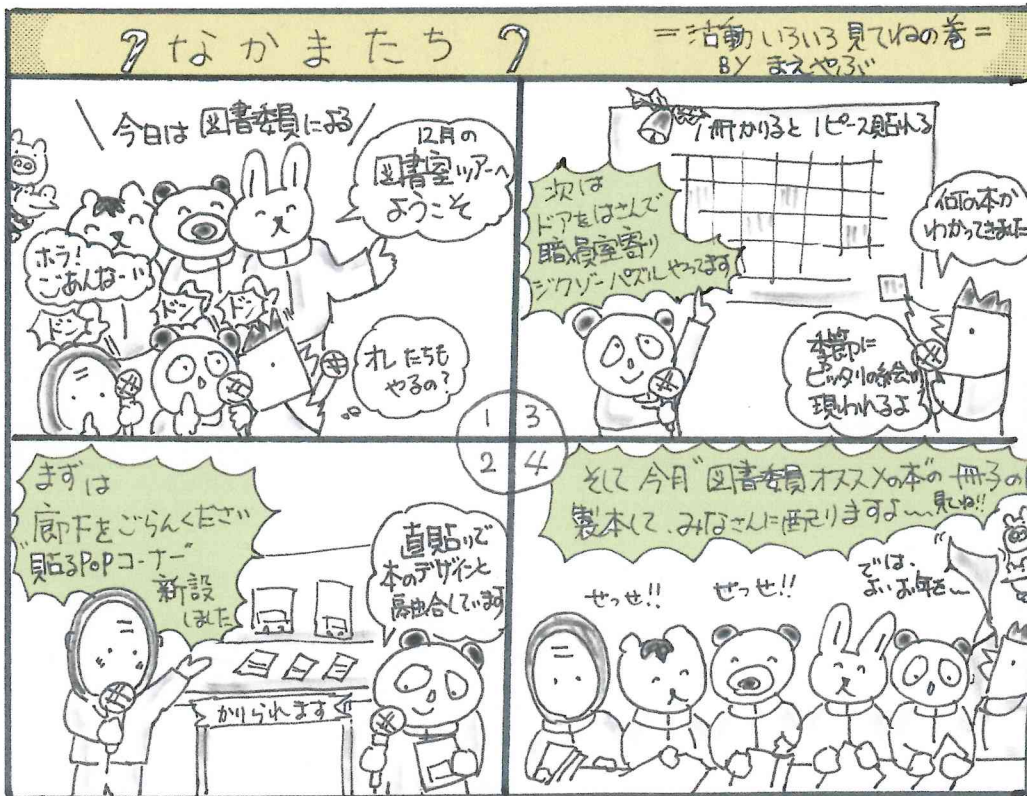 なかまたち
=活動いろいろ見てねの巻=
BY まえやぶ
今日は図書委員による
12月の
図書室ツアーへ
ようこそ
ホラ!
ごあんなーい
ドン
ドン
ドン
オレたちも
やるの?
1
2
まずは
廊下をごらんください
"貼るPOPコーナー"
新設
しました
直貼りで
本のデザインと
融合しています
かりられます
3
1冊かりると1ピース貼れる
次は
ドアをはさんで
職員室寄り
ジグソーパズルやってます
何の本か
わかってきました
季節に
ピッタリの絵が
現われるよ
4
そして今月"図書委員オススメの本"の冊子の
製本して、みなさんに配りますよ〜見てね!!
せっせ!!
せっせ!!
では、
よいお年を〜